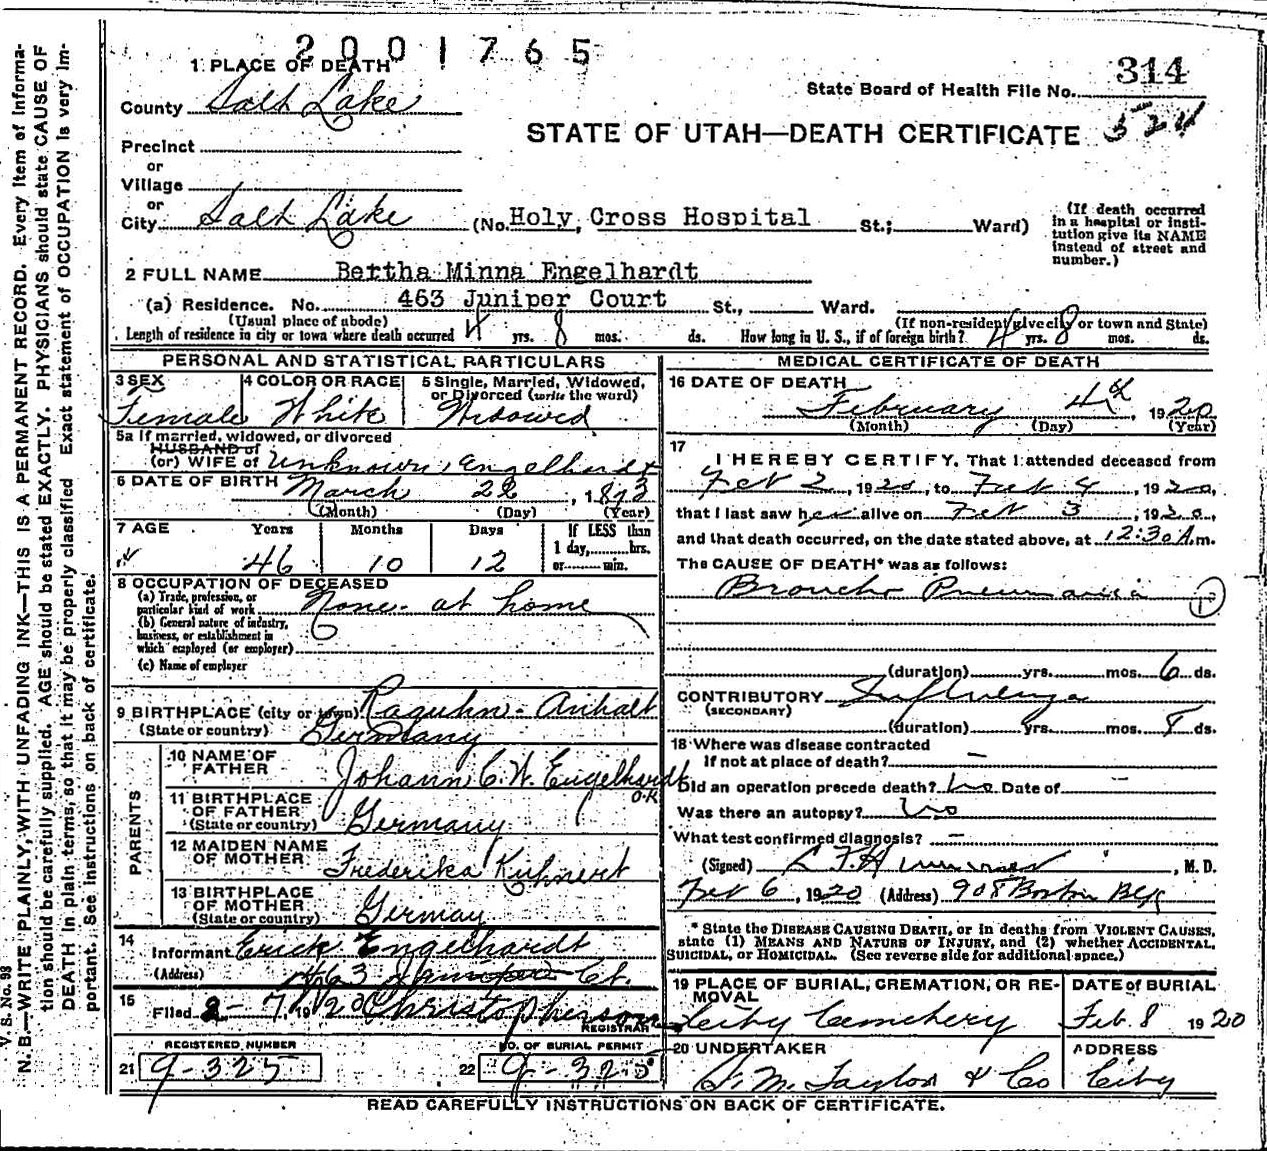 2001765
1 PLACE OF DEATH
County Salt Lake
State Board of Health File No. 314
STATE OF UTAH—DEATH CERTIFICATE 324
Precinct
or
Village
or
City Salt Lake (No. Holy Cross Hospital St.; Ward)
(If death occurred in a hospital or institution give its NAME instead of street and number.)
2 FULL NAME Bertha Minna Engelhardt
(a) Residence. No. 463 Juniper Court St., Ward.
(Usual place of abode) (If non-resident give city or town and State)
Length of residence in city or town where death occurred 4 yrs. 8 mos. ds. How long in U. S., if of foreign birth? 4 yrs. 8 mos. ds.
PERSONAL AND STATISTICAL PARTICULARS
3 SEX Female
4 COLOR OR RACE White
5 Single, Married, Widowed, or Divorced (write the word) Widowed
5a If married, widowed, or divorced
HUSBAND of
(or) WIFE of Unknown Engelhardt
6 DATE OF BIRTH March 22, 1873
(Month) (Day) (Year)
7 AGE Years Months Days If LESS than
46 10 12 1 day, hrs.
or min.
8 OCCUPATION OF DECEASED
(a) Trade, profession, or particular kind of work None - at home
(b) General nature of industry, business, or establishment in which employed (or employer)
(c) Name of employer
9 BIRTHPLACE (city or town) Raguhn - Anhalt
(State or country) Germany
PARENTS
10 NAME OF FATHER Johann C. W. Engelhardt
O.K
11 BIRTHPLACE OF FATHER (State or country) Germany
12 MAIDEN NAME OF MOTHER Frederika Kuhnert
13 BIRTHPLACE OF MOTHER (State or country) Germay
14 Informant Erick Engelhardt
(Address) 463 Juniper Ct.
15 Filed 2-7, 1920 Christopherson
REGISTRAR
REGISTERED NUMBER NO. OF BURIAL PERMIT
21 9-325 22 9-325
MEDICAL CERTIFICATE OF DEATH
16 DATE OF DEATH
February 4th, 1920
(Month) (Day) (Year)
17 I HEREBY CERTIFY, That I attended deceased from
Feb 2, 1920, to Feb 4, 1920,
that I last saw her alive on Feb 3, 1920,
and that death occurred, on the date stated above, at 12:30 A.m.
The CAUSE OF DEATH* was as follows:
Broncho Pneumonia
(duration) yrs. mos. 6 ds.
CONTRIBUTORY Influenza
(SECONDARY)
(duration) yrs. mos. 8 ds.
18 Where was disease contracted
If not at place of death? —
Did an operation precede death? No Date of —
Was there an autopsy? No
What test confirmed diagnosis? —
(Signed) , M. D.
Feb 6, 1920 (Address) 908 Boston Blg
* State the DISEASE CAUSING DEATH, or in deaths from VIOLENT CAUSES, state (1) MEANS AND NATURE OF INJURY, and (2) whether ACCIDENTAL, SUICIDAL, or HOMICIDAL. (See reverse side for additional space.)
19 PLACE OF BURIAL, CREMATION, OR REMOVAL DATE of BURIAL
City Cemetery Feb. 8 1920
20 UNDERTAKER ADDRESS
S. M. Taylor & Co City
READ CAREFULLY INSTRUCTIONS ON BACK OF CERTIFICATE.
V. S. No. 98
N. B.—WRITE PLAINLY, WITH UNFADING INK—THIS IS A PERMANENT RECORD. Every item of information should be carefully supplied. AGE should be stated EXACTLY. PHYSICIANS should state CAUSE OF DEATH in plain terms, so that it may be properly classified. Exact statement of OCCUPATION is very important. See instructions on back of certificate.